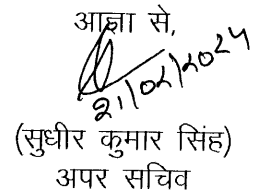 आज्ञा से,
21/02/2024
(सुधीर कुमार सिंह)
अपर सचिव